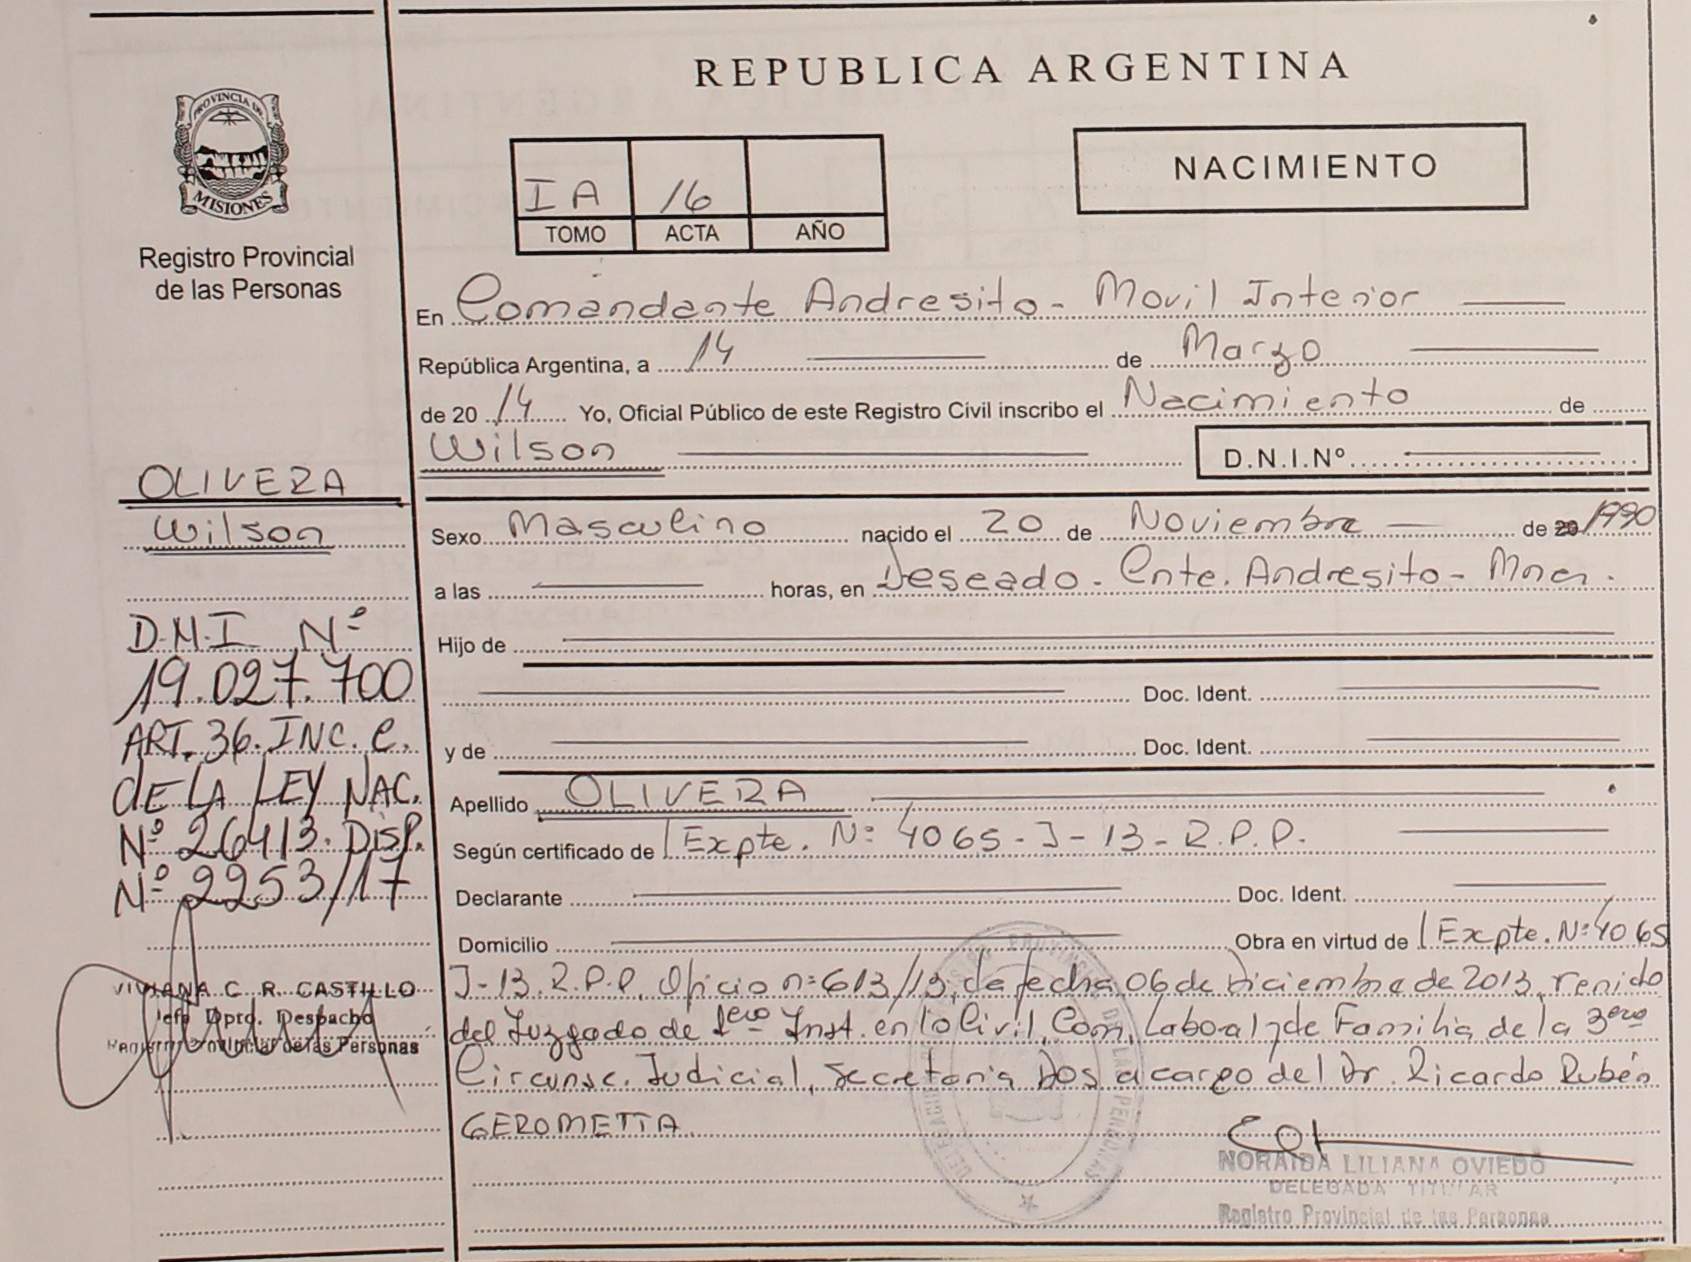 REPUBLICA ARGENTINA
PROVINCIA DE
MISIONES
Registro Provincial
de las Personas
IA 16
TOMO ACTA AÑO
NACIMIENTO
En Comandante Andresito - Movil Interior
República Argentina, a 14 de Marzo
de 20 14 Yo, Oficial Público de este Registro Civil inscribo el Nacimiento de
Wilson D.N.I.Nº
OLIVERA
Wilson
D.N.I Nº
19.027.700
ART. 36. INC. C.
DE LA LEY NAC.
Nº 26413. DISP.
Nº 2253/17
VIVIANA C. R. CASTILLO
Jefa Dpto. Despacho
Registro Provincial de las Personas
Sexo Masculino nacido el 20 de Noviembre de 20 1990
a las horas, en Deseado - Cnte. Andresito - Mnes.
Hijo de
Doc. Ident.
y de Doc. Ident.
Apellido OLIVERA
Según certificado de Expte. Nº 4065 - J - 13 - R.P.P.
Declarante Doc. Ident.
Domicilio Obra en virtud de Expte. Nº 4065
J-13. R.P.P. Oficio nº 613/13, de fecha 06 de Diciembre de 2013, renido
del Juzgado de 1ero Inst. en lo Civil, Com, Laboral y de Familia de la 3era
Circunsc. Judicial, Secretaria Dos a cargo del Dr. Ricardo Rubén
GEROMETTA
NORAIDA LILIANA OVIEDO
DELEGADA TITULAR
Registro Provincial de las Personas